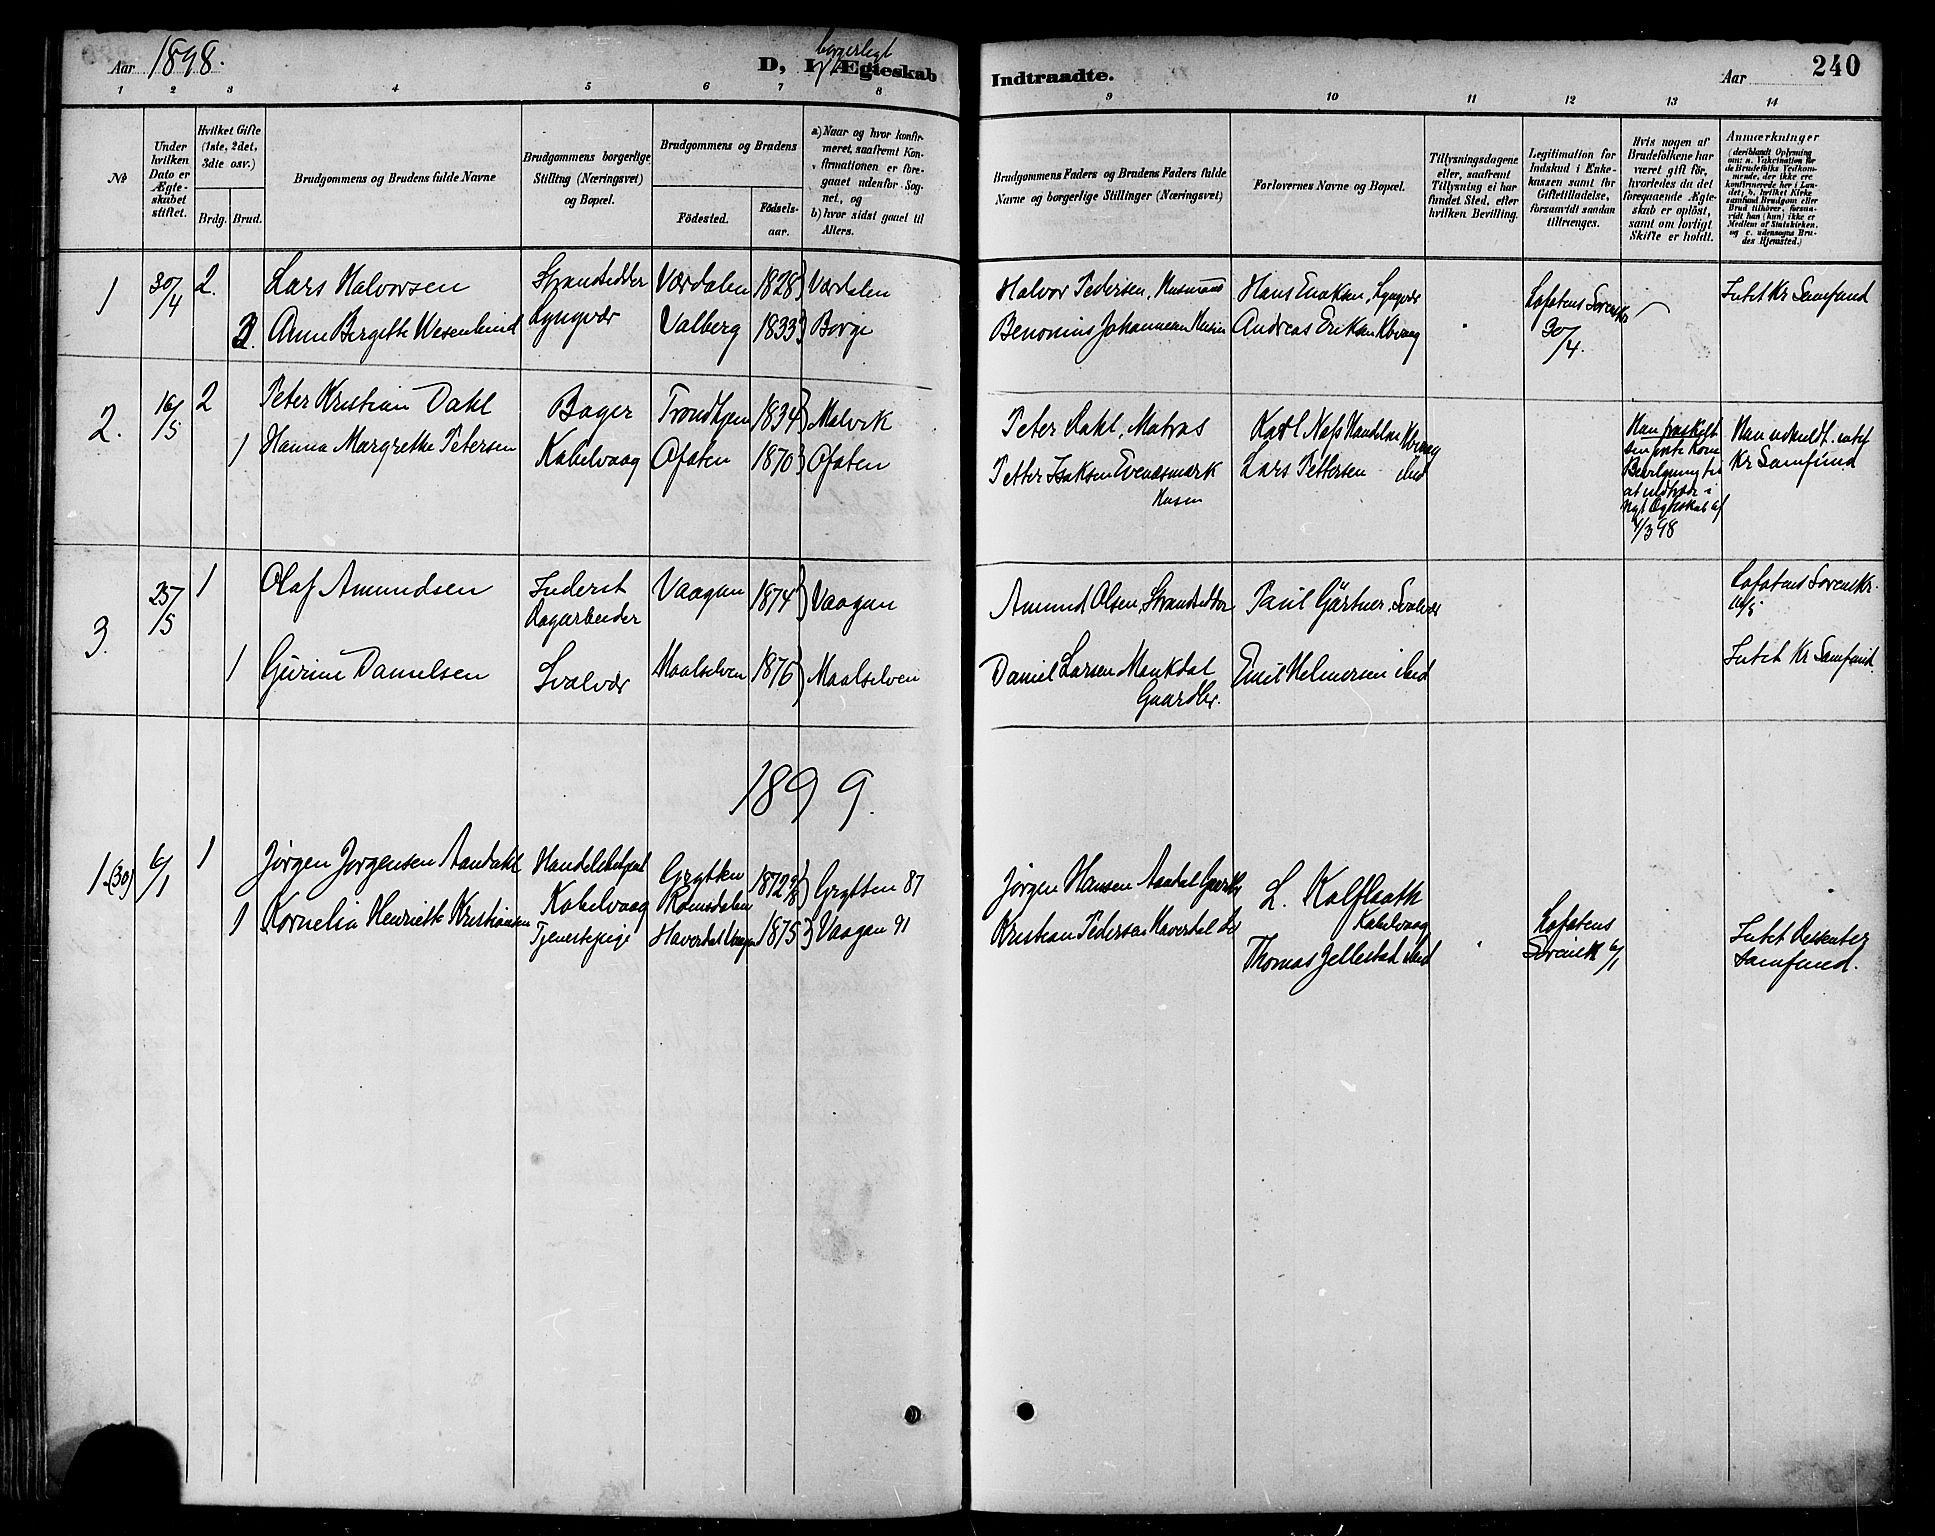 Aar 1898.
borgerligt
D, I Ægteskab Indtraadte.
Aar
240
1 2 3 4 5 6 7 8 9 10 11 12 13 14
No
Under hvilken Dato er Ægteskabet stiftet.
Hvilket Gifte (1ste, 2det, 3die osv.)
Brdg. Brud.
Brudgommens og Brudens fulde Navne
Brudgommens borgerlige Stilling (Næringsvei) og Bopæl.
Brudgommens og Brudens
Fødested. Fødselsaar.
a) Naar og hvor konfirmeret, saafremt Konfirmationen er foregaaet udenfor Sognet, og
b) hvor sidst gaaet til Alters.
Brudgommens Faders og Brudens Faders fulde Navne og borgerlige Stillinger (Næringsvei)
Forlovernes Navne og Bopæl.
Tillysningsdagene eller, saafremt Tillysning ei har fundet Sted, efter hvilken Bevilling.
Legitimation for Indskud i Enkekassen samt for Giftetilladelse, forsaavidt saadan tiltrænges.
Hvis nogen af Brudefolkene har været gift før, hvorledes da det foregaaende Ægteskab er opløst, samt om lovligt Skifte er holdt.
Anmærkninger (deriblandt Oplysning om: a. Vakcination for de Brudefolks Vedkommende, der ikke ere konfirmerede her i Landet; b. hvilket Kirkesamfund Brudgom eller Brud tilhører, forsaavidt han (hun) ikke er Medlem af Statskirken, og c. udensogns Brudes Hjemsted.)
1 30/4 2. Lars Halvorsen Strandsidder Værdalen 1828 Værdalen Halvor Pedersen, Husmand Hans Enoksen, Lyngvær Lofotens Sorensk. Intet Kr Samfund
2. Anne Bergitte Wesenlund Lyngvær Valberg 1833 Borge Benonius Johannesen Husm Andreas Eriksen Kbvaag 30/4.
2. 16/5 2 Peter Kristian Dahl Bager Trondhjem 1834 Malvik Peter Dahl, Matros Karl Næss Handelsm Kbvaag Han fraskilt Han udmeldt. intet
1 Hanna Margrethe Petersen Kabelvaag Ofoten 1870 Ofoten Petter Isaksen Evenesmark Lars Pettersen ibid Kr Samfund
Husm Bevilgning til at indtræde i Nyt Ægteskab af 4/3 98
3. 25/5 1 Olaf Amundsen Inderst Vaagan 1874 Vaagan Amund Olsen, Strandsidder Paul Gärtner, Svolvær Lofotens Sorenskr.
Dagarbeider
1 Gurine Danielsen Svolvær Maalselven 1876 Maalselven Daniel Larsen Emil Helmersen ibid Intet Kr Samfund
Gaardbr.
1899.
1 (30) 6/1 1 Jørgen Jørgensen Aandahl Handelsbetjent Grytten 1872 Grytten 87 Jørgen Hansen Aandal Gaardbr L. Kalflaath
Kabelvaag Romsdalen Kabelvaag
1 Kornelia Henriette Kristiansen Tjenestepige Haverdal Vaagan 1875 Vaagan 91 Kristian Pedersen Haverdal do Thomas Jellestad ibid Lofotens Sorensk 6/1 Intet Dissenter Samfund.